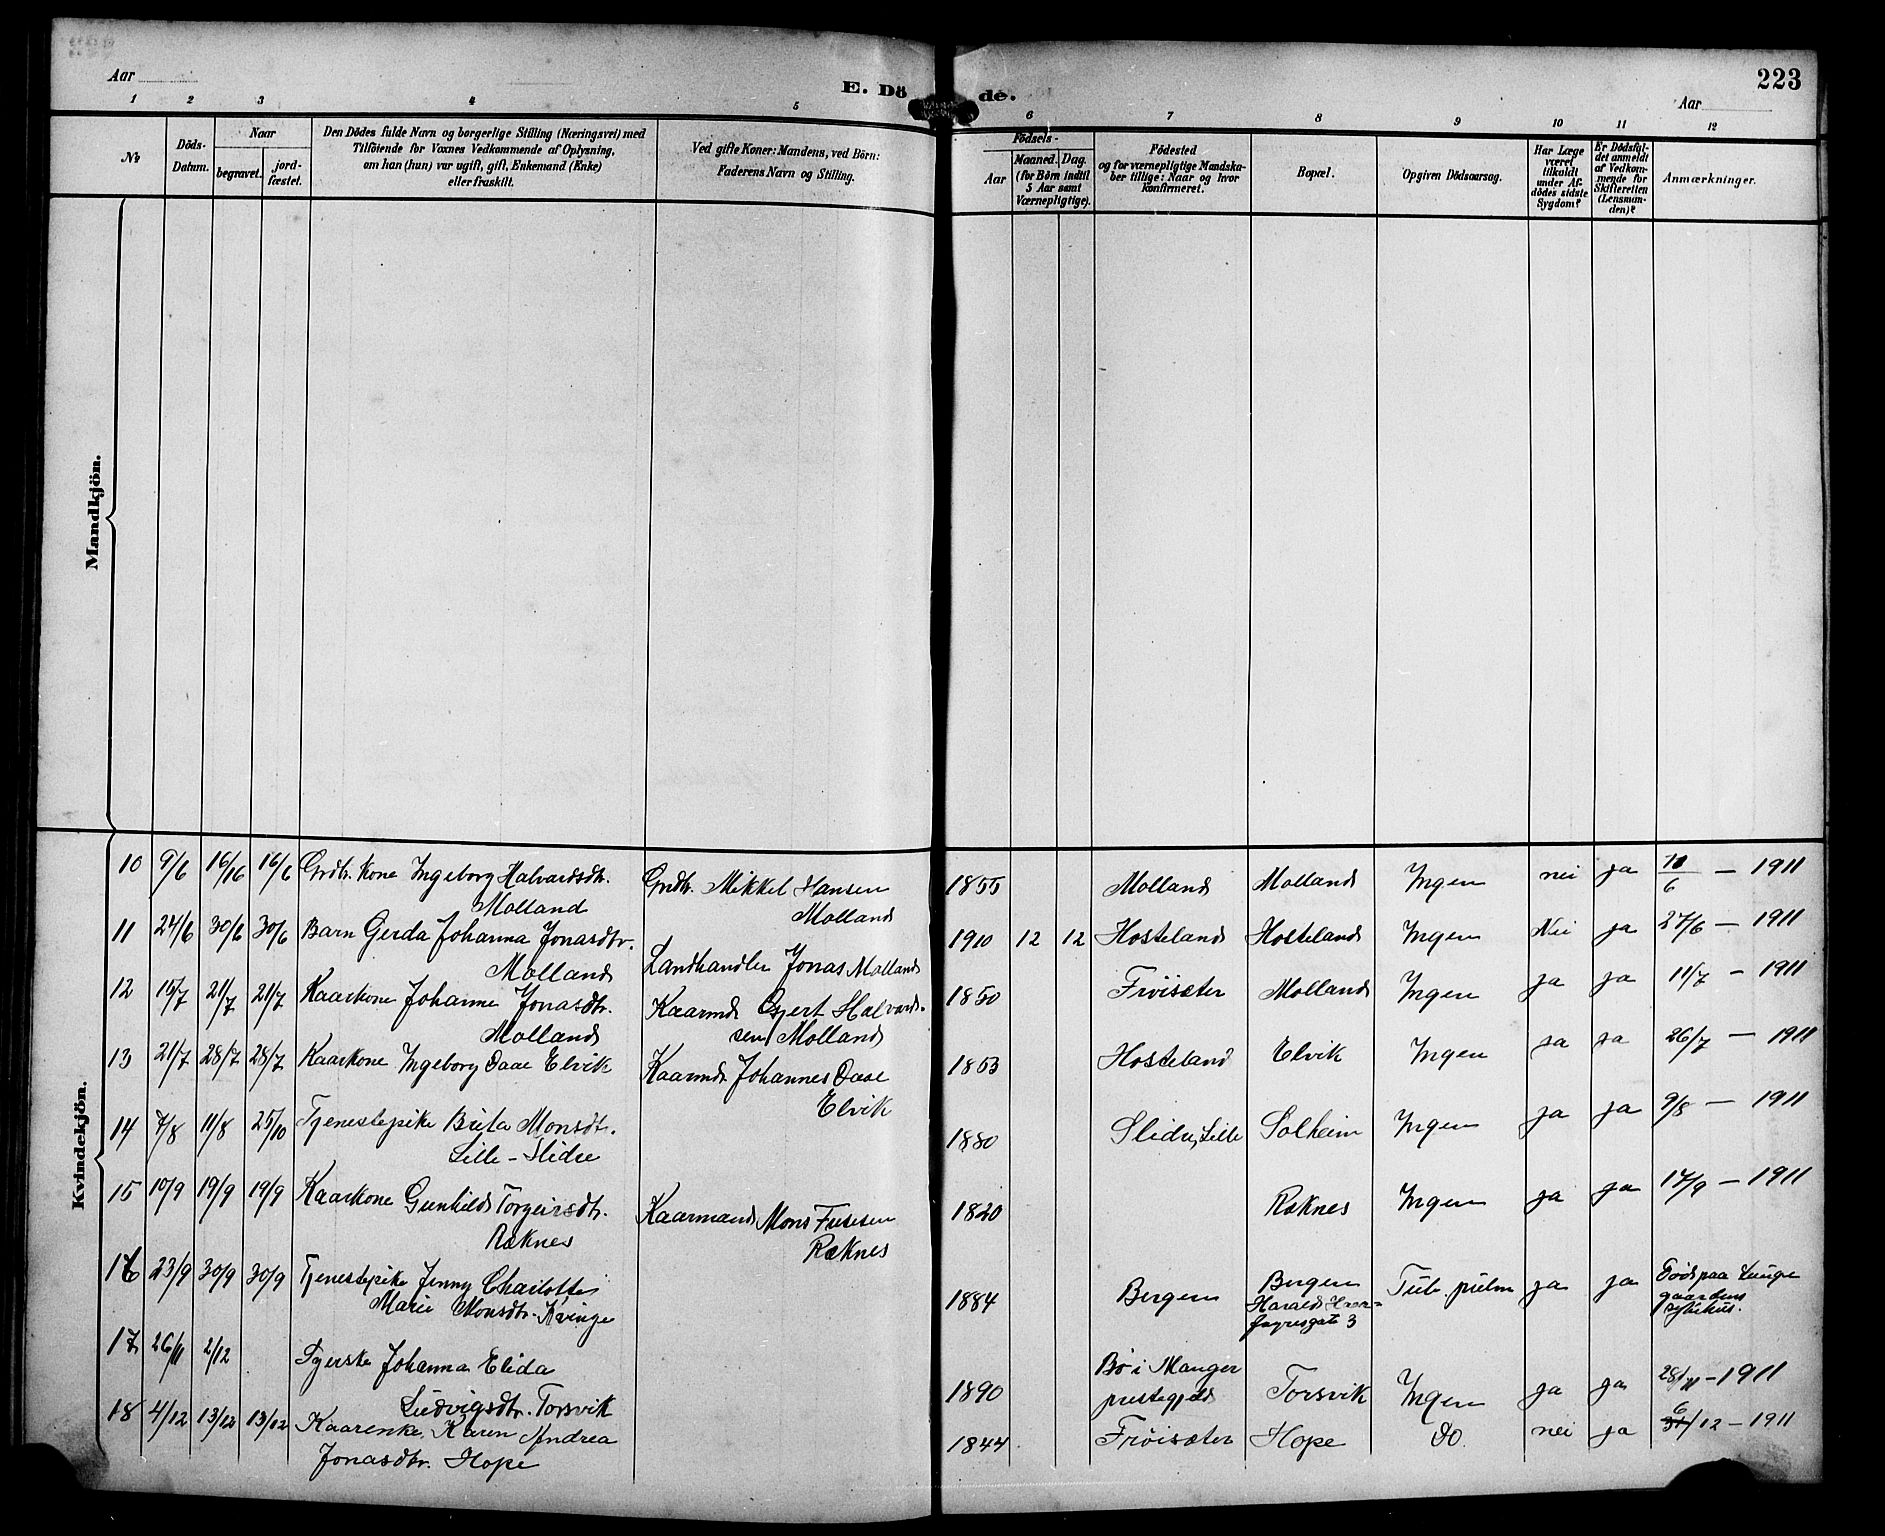 Aar
E. Dö
de.
Aar
223
1 2 3 4 5 6 7 8 9 10 11 12
№
Döds-
Datum.
Naar
begravet.
jord-
fæstet.
Den Dödes fulde Navn og borgerlige Stilling (Næringsvei) med
Tilföiende for Voxnes Vedkommende af Oplysning,
om han (hun) var ugift, gift, Enkemand (Enke)
eller fraskilt.
Ved gifte Koner: Mandens, ved Börn:
Faderens Navn og Stilling.
Födsels-
Aar
Maaned. Dag.
(for Börn indtil
5 Aar samt
Værnepligtige).
Födested
og for værnepligtige Mandska-
ber tillige: Naar og hvor
konfirmeret.
Bopæl.
Opgiven Dödsaarsag.
Har Læge
været
tilkaldt
under Af-
dödes sidste
Sygdom?
Er Dödsfal-
det anmeldt
af Vedkom-
mende for
Skifteretten
(Lensman-
den)?
Anmærkninger.
Mandkjön.
Kvindekjön.
10 9/6 16/16 16/6 Grdbr. Kone Ingeborg Halvardsdtr. Grdbr. Mikkel Hansen 1855 Molland Molland Ingen nei ja 10/6 — 1911
Molland Molland
11 24/6 30/6 30/6 Barn Gerda Johanna Jonasdtr. Landhandler Jonas Molland 1910 12 12 Hosteland Hosteland Ingen Nei ja 27/6 — 1911
Molland
12 15/7 21/7 21/7 Kaarkone Johanne Jonasdtr. Kaarmd. Halvard- 1850 Frøisæter Molland Ingen ja ja 11/7 — 1911
Molland sen Molland
13 21/7 28/7 28/7 Kaarkone Ingeborg Daae Elvik Kaarmd. Johannes Daae 1853 Hosteland Elvik Ingen ja ja 26/7 — 1911
Elvik
14 7/8 11/8 25/10 Tjenestepike Brita Monsdtr. 1880 Slidre, Lille Solheim Ingen ja ja 9/8 — 1911
Lille-Slidre
15 10/9 19/9 19/9 Kaarkone Gunhild Torgeirsdtr. Kaarmand Mons 1820 Ræknes Ingen ja ja 17/9 — 1911
Ræknes Ræknes
16 23/9 30/9 30/9 Tjenestepike Jenny Charlotte 1884 Bergen Bergen Tub. pulm ja ja Død paa Lunge
Marie Monsdtr. Kvinge Harald Haar- gaardens
fagresgate 3 sykehus.
17 26/11 2/12 Johanna Elida Bø i Manger
Ludvigsdtr. Torsvik 1890 prestegjeld Torsvik Ingen ja ja 28/11 — 1911
18 4/12 13/12 13/12 Kaarenke Karen Andrea 1844 Frøisæter Hope Do nei ja 6/12 — 1911
Jonasdtr. Hope